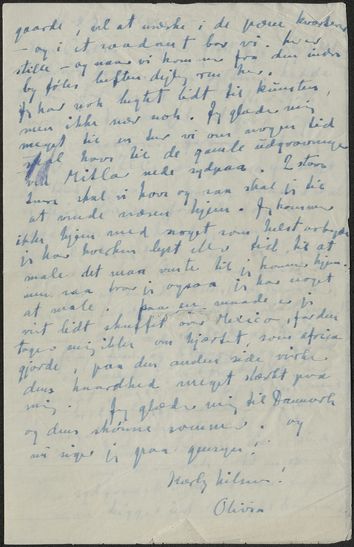 gaarde, vil at næste i de pæne kvarterer
- og i et saadant bor vi. her er
stille - og naar vi kom ind fra den indre
by føles luften dejlig ren her.
Jeg har nok kigget lidt til kunsten,
men ikke nær nok. Jeg glæder mig
meget til en tur vi om nogen tid
skal have til de gamle udgravninger
ved Mitla nede sydpaa. 2 store
ture skal vi have og saa skal jeg til
at vende næsen hjem. Jeg kommer
ikke hjem med noget som helst arbejde
jeg har hverken lyst eller tid til at
male det maa vente til jeg kommer hjem.
men saa tror jeg ogsaa jeg har noget
at male. paa en maade er jeg
vist lidt skuffet over Mexico, for den
tager mig ikke om hjærtet, som Africa
gjorde, paa den anden side virker
dens haardhed meget stærkt paa
mig. Jeg glæder mig til Danmark
og dens skønne sommer. og
nu siger jeg paa gensyn!
Kærlig hilsen!
Olivia